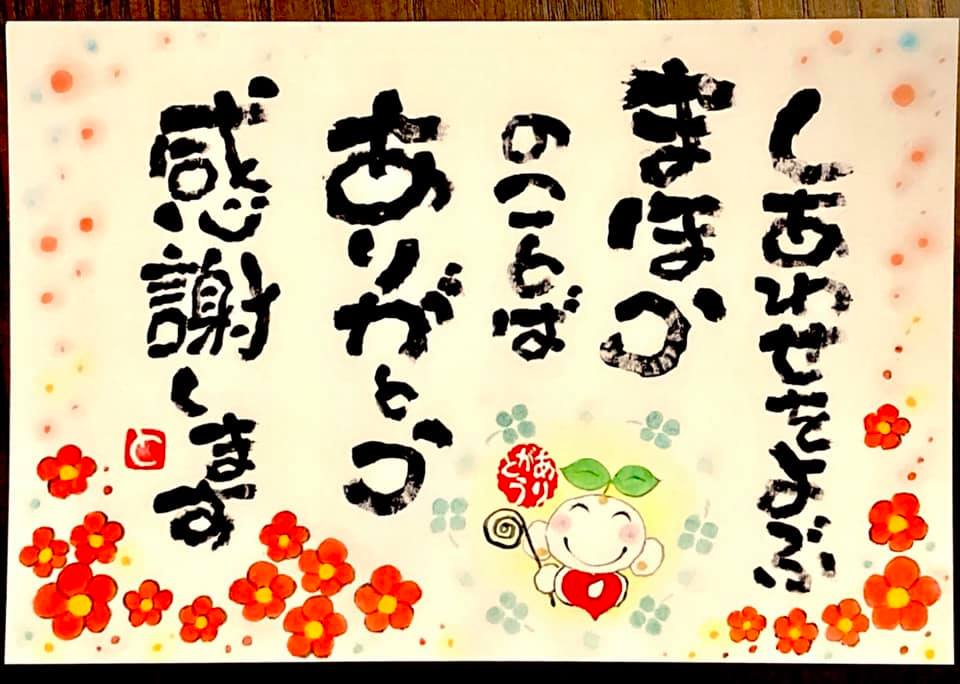 しあわせをよぶ
まほう
のことば
ありがとう
感謝します
ありがとう